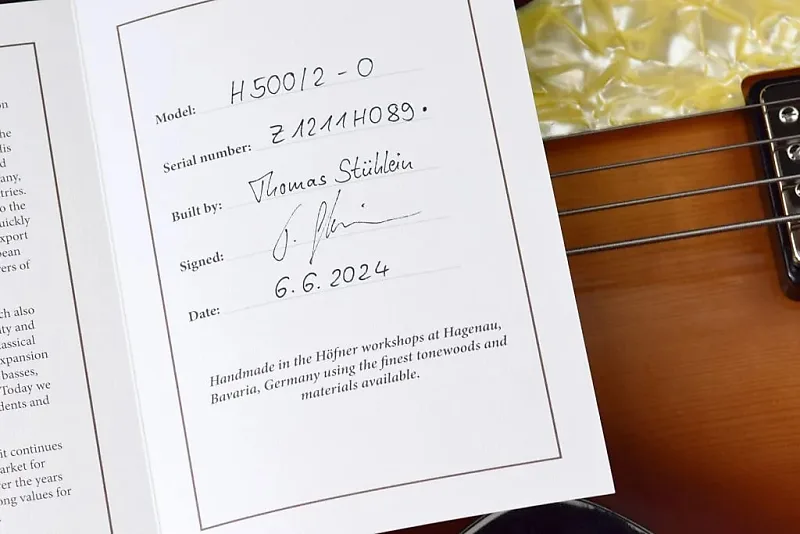 on
he
lis
d
any,
tries.
o the
uickly
xport
pean
vers of
ch also
ty and
assical
xpansion
basses,
Today we
dents and
it continues
arket for
er the years
ong values for
Model: H500/2-0
Serial number: Z1211H089.
Built by: Thomas Stühlein
Signed:
Date: 6.6.2024
Handmade in the Höfner workshops at Hagenau,
Bavaria, Germany using the finest tonewoods and
materials available.